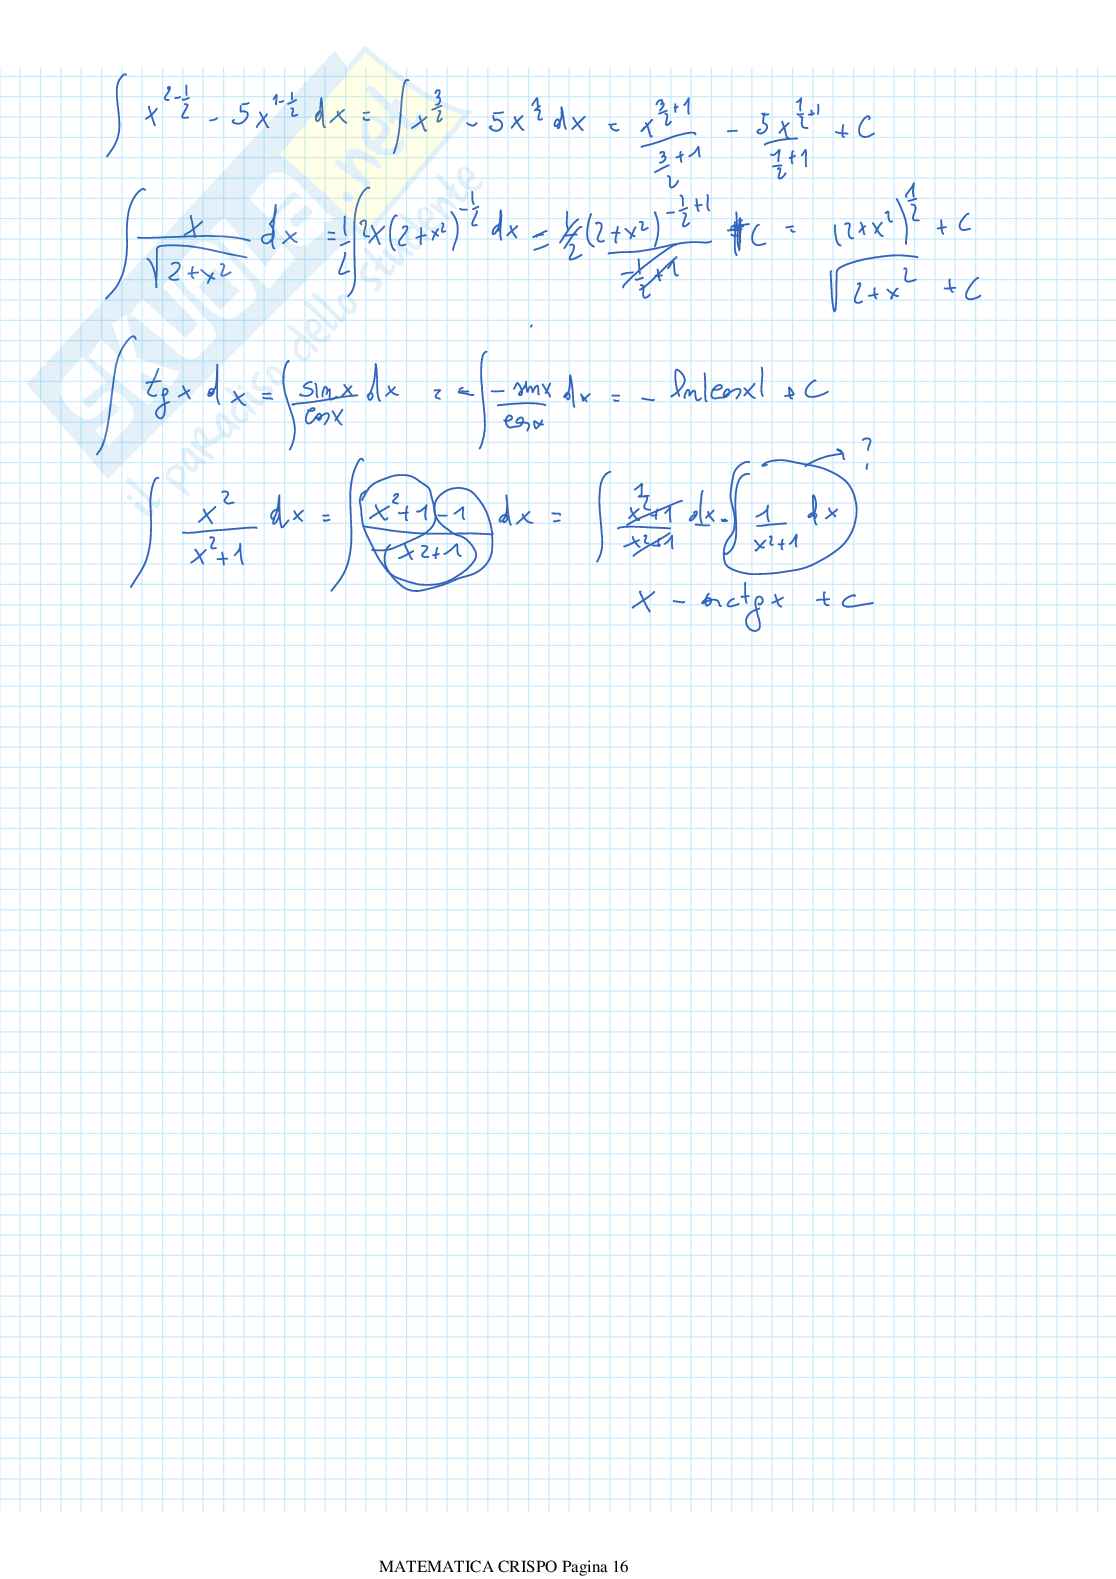 ∫ x^{2-1/2} - 5x^{1-1/2} dx = ∫ x^{3/2} - 5x^{1/2} dx = x^{3/2+1}/(3/2+1) - 5x^{1/2+1}/(1/2+1) + C
∫ x/√(2+x²) dx = 1/2 ∫ 2x(2+x²)^{-1/2} dx = 1/2 (2+x²)^{-1/2+1}/(-1/2+1) + C = (2+x²)^{1/2} + C
√(2+x²) + C
∫ tg x dx = ∫ sin x/cos x dx = - ∫ -sin x/cos x dx = - ln|cos x| + C
∫ x²/(x²+1) dx = ∫ (x²+1-1)/(x2+1) dx = ∫ 1 (x²+1)/(x²+1) dx - ∫ 1/(x²+1) dx → ?
x - arctg x + C
SKUOLA.net
il paradiso dello studente
MATEMATICA CRISPO Pagina 16